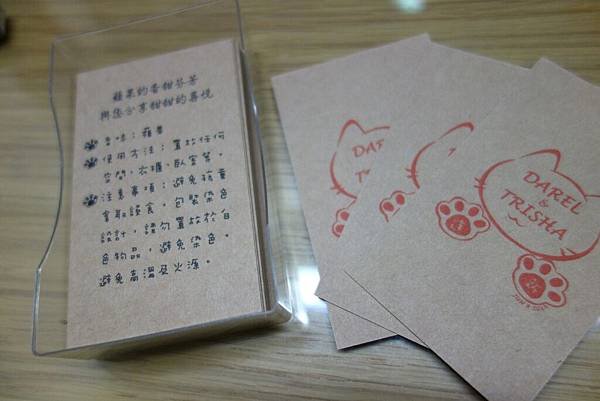 蘋果的香甜芬芳
與您分享甜甜的喜悅
香味：蘋果
使用方法：置放任何
空間，衣櫃，臥室等。
注意事項：避免孩童
拿取誤食，包裝染色
設計，請勿置放於白
色物品，避免染色。
避免高溫及火源。
DAREL
&
TRISHA